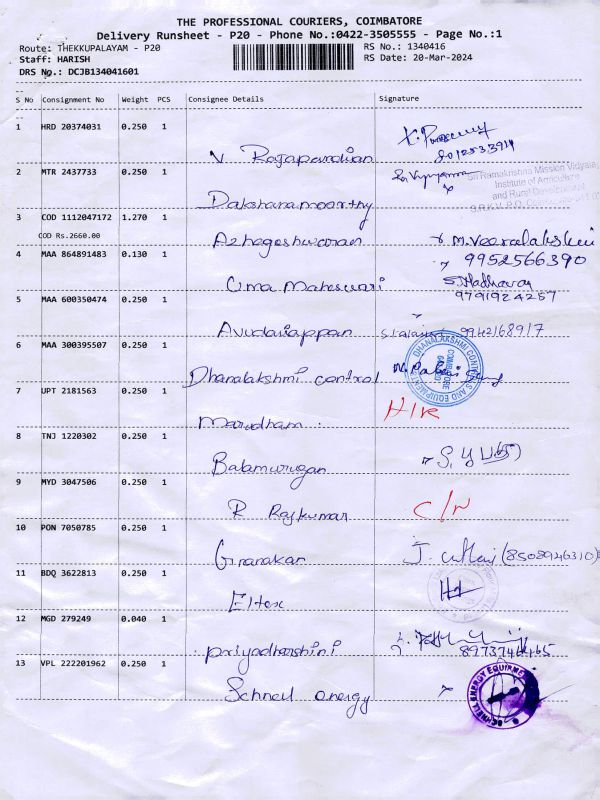 THE PROFESSIONAL COURIERS, COIMBATORE
Delivery Runsheet - P20 - Phone No.:0422-3505555 - Page No.:1
Route: THEKKUPALAYAM - P20 RS No.: 1340416
Staff: HARISH RS Date: 20-Mar-2024
DRS No.: DCJB134041601
S No Consignment No Weight PCS Consignee Details Signature
1 HRD 20374031 0.250 1
V. Rajapandian
2 MTR 2437733 0.250 1
Sri Ramakrishna Mission Vidyala
Institute of Agriculture
and Rural Development
Dakshanamoorthy
3 COD 1112047172 1.270 1
COD Rs.2660.00
Azhageshwaran M. Veeralakshmi
9952566390
4 MAA 864891483 0.130 1
Uma Maheswari S. Madhavan
9791924257
5 MAA 600350474 0.250 1
Avudaiappan 9942168917
6 MAA 300395507 0.250 1
DHANALAKSHMI CONTROLS AND EQUIPMENT
COIMBATORE
Dhanalakshmi control
7 UPT 2181563 0.250 1
Marudham H/R
8 TNJ 1220302 0.250 1
Balamurugan
9 MYD 3047506 0.250 1
R Rajkumar C/N
10 PON 7050785 0.250 1
Gnanakar J. (8508946310)
11 BDQ 3622813 0.250 1
Eltex
12 MGD 279249 0.040 1
Priyadharshini
13 VPL 222201962 0.250 1
Schnell energy
SCHNELL ENERGY EQUIPMENT